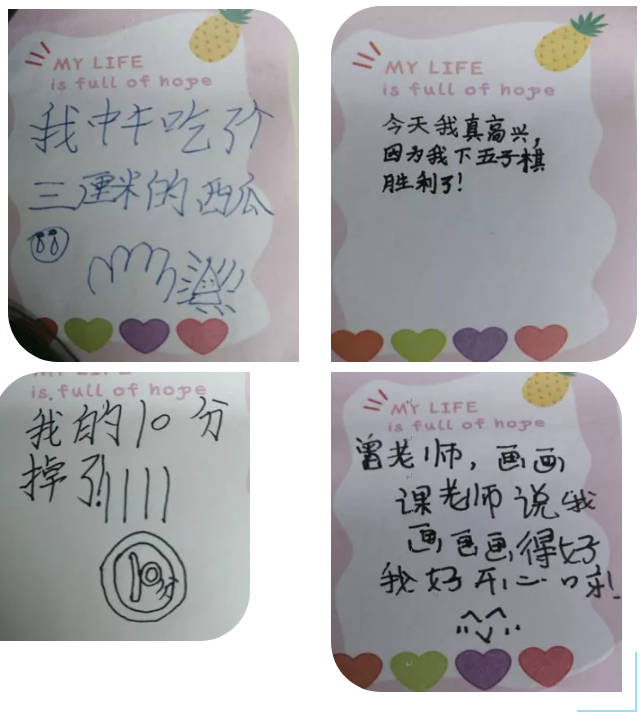 MY LIFE
is full of hope
我中午吃了个
三厘米的西瓜
MY LIFE
is full of hope
今天我真高兴,
因为我下五子棋
胜利了!
MY LIFE
is full of hope
我的10分
掉了!
10分
MY LIFE
is full of hope
曾老师,画画
课老师说我
画画画得好
我好开心呀!